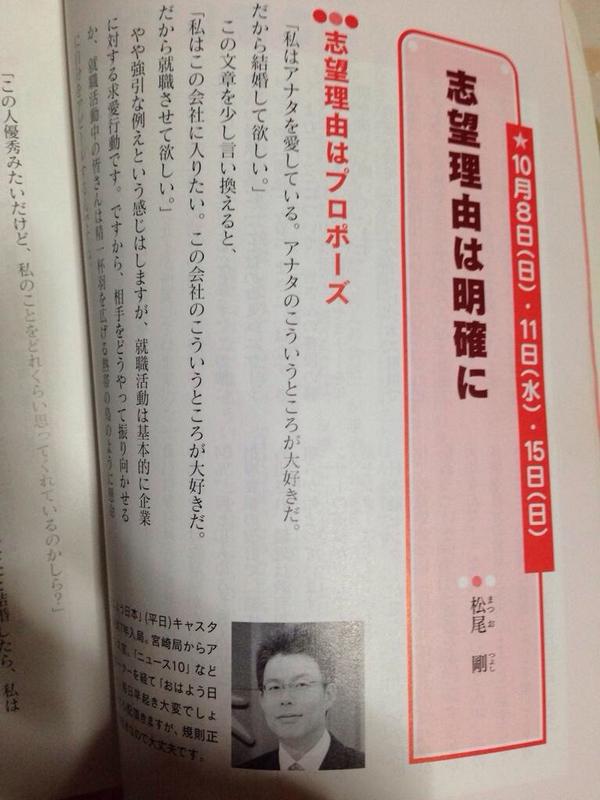 ★10月8日(日)・11日(水)・15日(日)
志望理由は明確に
松尾 剛
まつお つよし
志望理由はプロポーズ
「私はアナタを愛している。アナタのこういうところが大好きだ。
だから結婚して欲しい。」
この文章を少し言い換えると、
「私はこの会社に入りたい。この会社のこういうところが大好きだ。
だから就職させて欲しい。」
やや強引な例えという感じはしますが、就職活動は基本的に企業
に対する求愛行動です。ですから、相手をどうやって振り向かせる
か、就職活動中の皆さんは精一杯羽を広げる熱帯の鳥のように
う日本」(平日)キャスタ
年入局。宮崎局からア
「ニュース10」など
ターを経て「おはよう日
毎日早起き大変でしょ
頂きますが、規則正
なので大丈夫です。
「この人優秀みたいだけど、私のことをどれくらい思ってくれているのかしら?」
結婚したら、私は